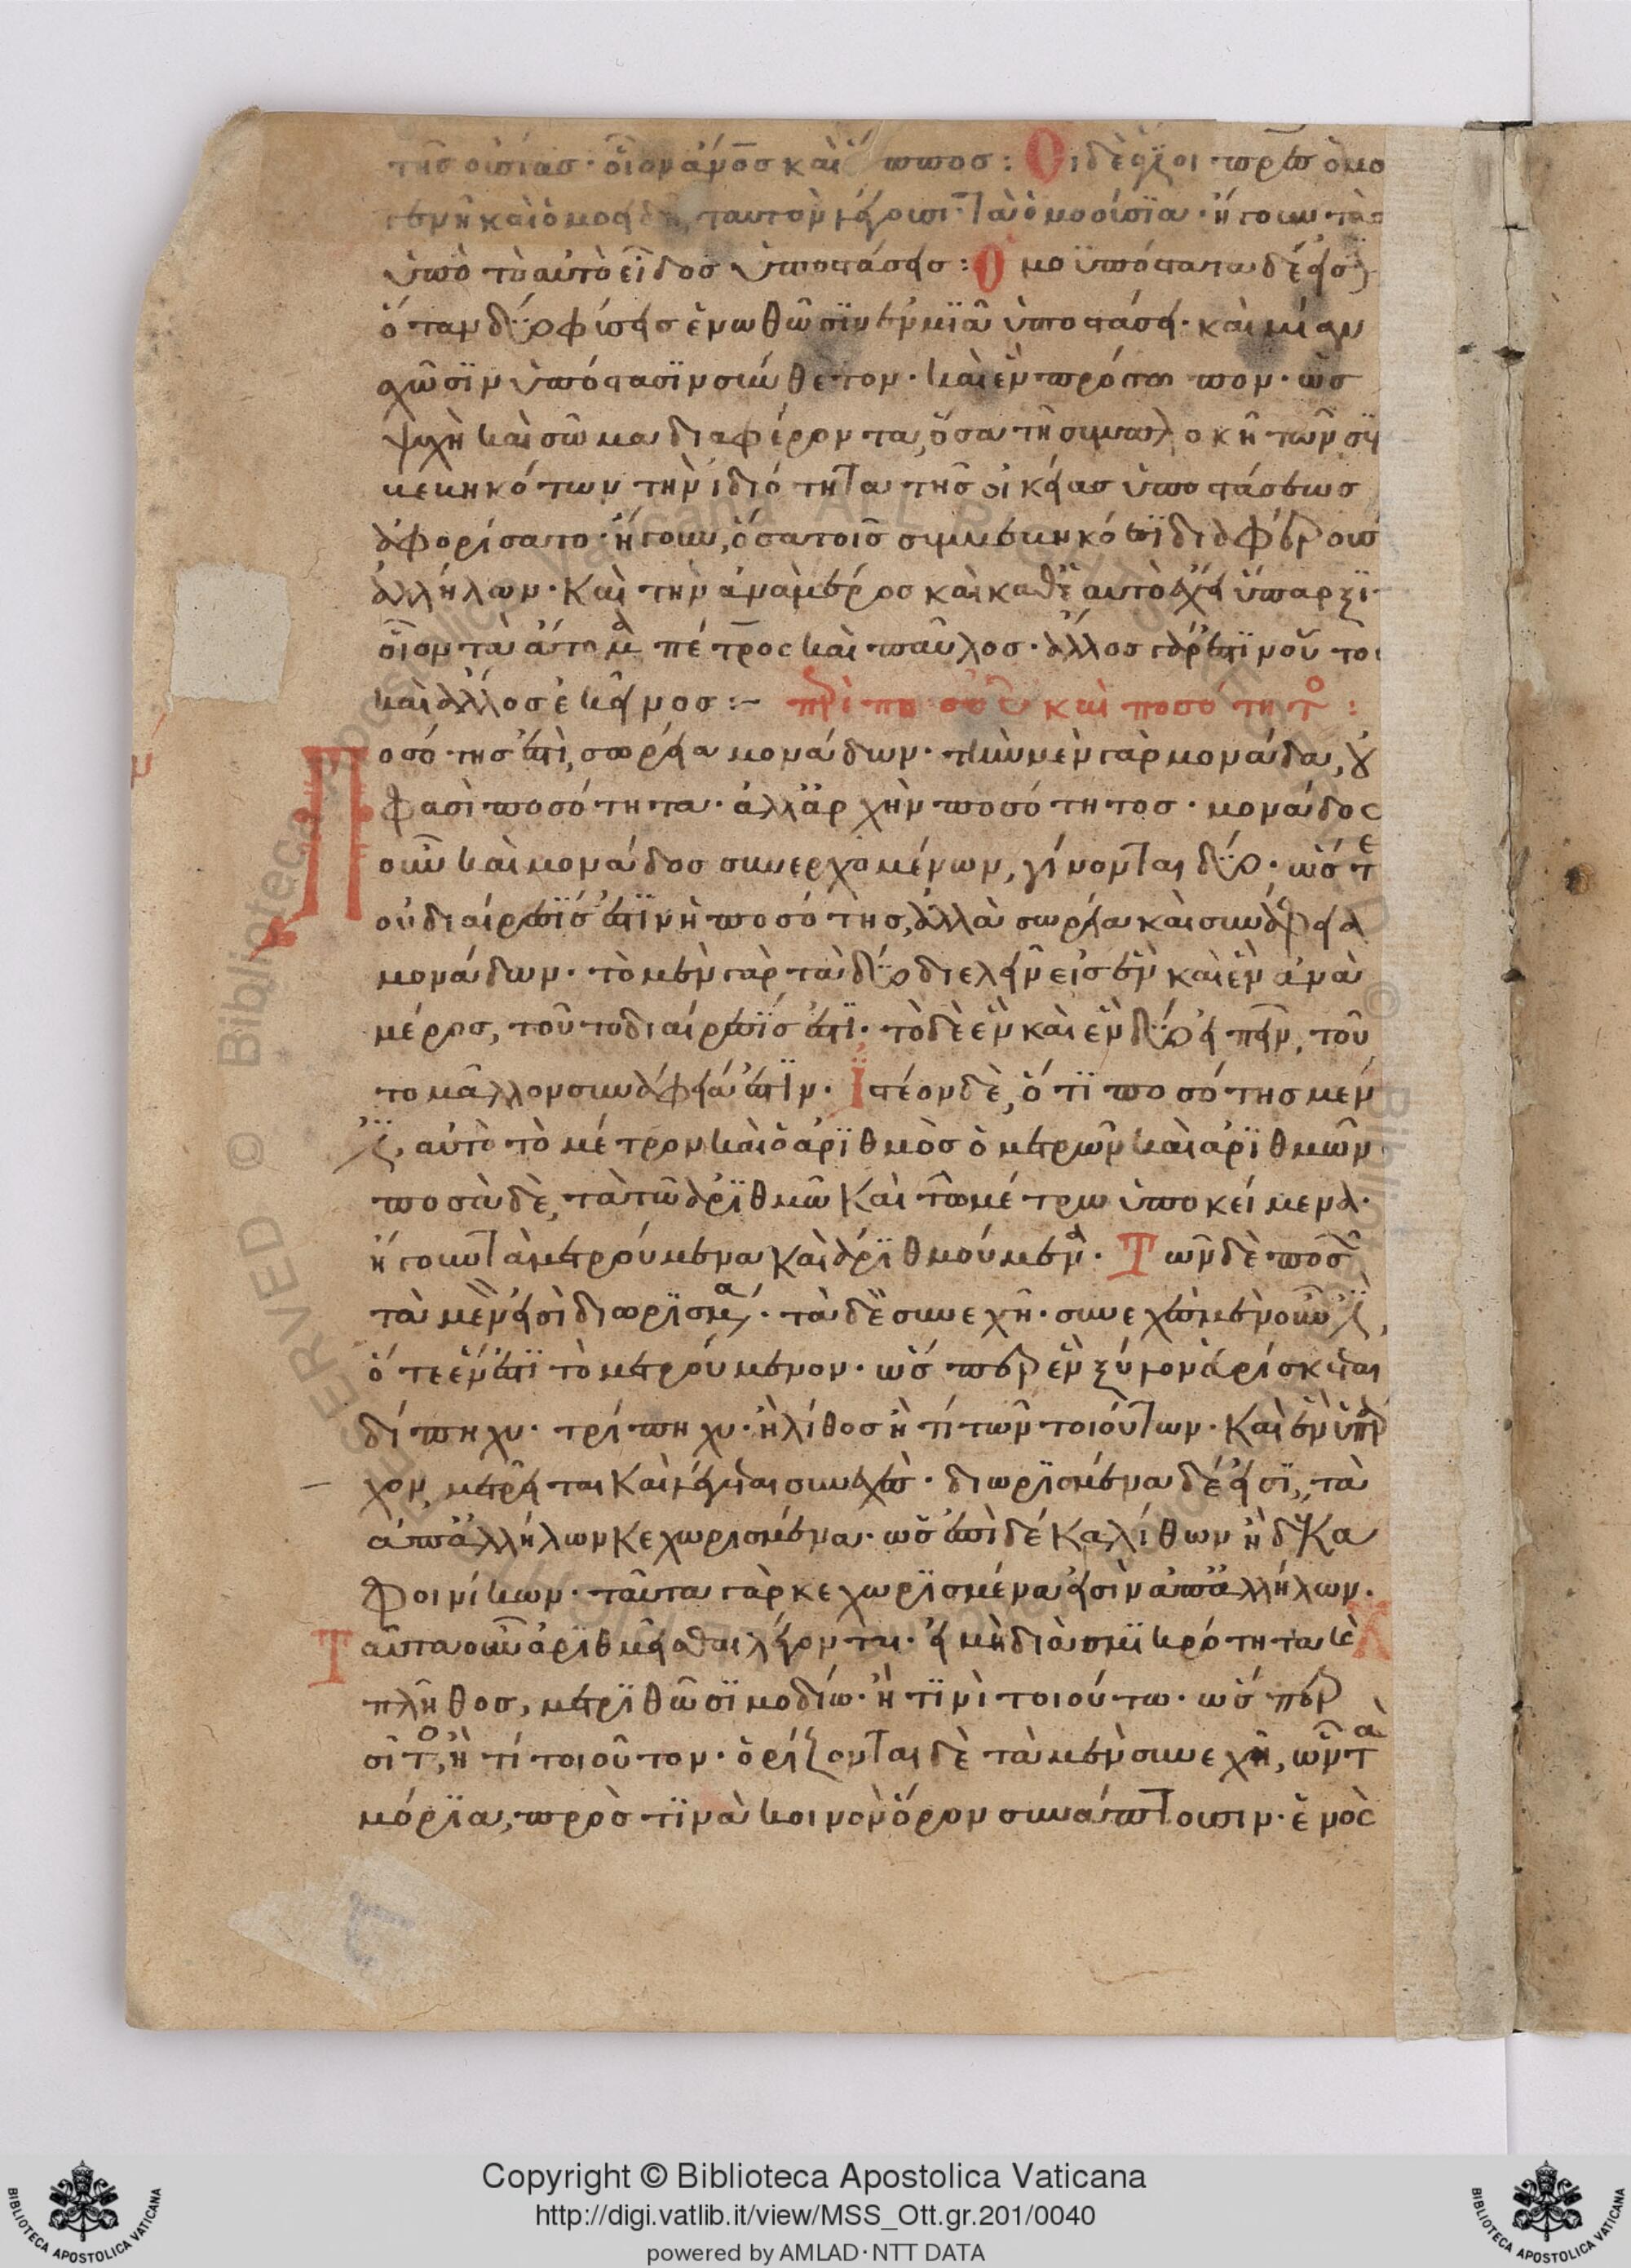 τῆς οὐσίας· οἷον ἄνος καὶ ἵππος: Οἱ δὲ ἅγιοι πρς ὁμο
γενῆ καὶ ὁμοειδῆ ταυτὸν λέγουσι· τὰ ὁμοούσϊα· ἤγουν τὰς
ὑπὸ τὸ αὐτὸ εἶδος ὑποστάσεις: Ὁμοϋπόστατα δέ εἰσϊ
ὅταν δύο φύσεις ἑνωθῶσϊν ἐν μϊᾷ ὑποστάσει· καὶ μίαν
σχῶσϊν ὑπόστασϊν σύνθετον· καὶ ἓν πρόσωπον· ὡς
ψυχὴ καὶ σῶμα διαφέροντα, ὅσα τῆ συμπλοκῆ τῶν συμ
βεβηκότων τὴν ἰδιότητα τῆς οἰκείας ὑποστάσεως
ἀφορίσατο· ἤγουν, ὅσα τοῖς συμβεβηκόσϊ διαφέρουσιν
ἀλλήλων· Καὶ τὴν ἀναμέρος καὶ καθ' ἑαυτὸ ἔχει ὕπαρξϊ
οἷον τὰ ἄτομα πέτρος καὶ παῦλος· ἄλλος γάρ ἐστϊν οὗτος
καὶ ἄλλος ἐκεῖνος:– περὶ ποσοῦ καὶ ποσότητο:
Ποσότης ἐστὶ, σωρεία μονάδων· τὴν μὲν γὰρ μονάδα, οὔ
φασὶ ποσότητα· ἀλλ' ἀρχὴν ποσότητος· μονάδος
οὖν καὶ μονάδος συνερχομένων, γίνονται δύο· ὥστε
οὐ διαίρεσϊς ἐστϊν ἡ ποσότης, ἀλλὰ σωρεία καὶ συνάφεια
μονάδων· τὸ μὲν γὰρ τὰ δύο διελεῖν εἰς ἓν καὶ ἓν ἀνὰ
μέρος, τοῦτο διαίρεσϊς ἐστϊ· τὸ δὲ ἓν καὶ ἓν δύο εἰπεῖν, τοῦ
το μᾶλλον συνάφειά ἐστϊν· Ἰστέον δὲ, ὅτϊ ποσότης μέν
ἐστϊ, αὐτὸ τὸ μέτρον καὶ ὁ ἀρϊθμὸς ὁ μετρῶν καὶ ἀρϊθμῶν·
ποσὰ δὲ, τὰ τῶ ἀρϊθμῶ Καὶ τῶ μέτρω ὑποκείμενα·
ἤγουν τὰ μετρούμενα Καὶ ἀρϊθμούμενα· Τῶν δὲ ποσῶν
τὰ μέν εἰσὶ διωρϊσμένα· τὰ δὲ συνεχῆ· συνεχὲς μὲν οὖν ἐστϊ,
ὅτε ἕν ἐστϊ τὸ μετρούμενον· ὥσπερ ἓν ξύλον εὑρίσκεται
δίπηχυ· τρίπηχυ· ἢ λίθος ἤ τι τῶν τοιούτων· Καὶ ἓν ὑπάρ
χον, μετρεῖται Καὶ λέγεται συνεχὲς· διωρϊσμένα δέ εἰσϊ, τὰ
ἀπ' ἀλλήλων Κεχωρισμένα· ὡς ἐπὶ δέκα λίθων ἢ δέΚα
φοινίκων· ταῦτα γὰρ κεχωρϊσμένα εἰσὶν ἀπ' ἀλλήλων·
Ταῦτα οὖν ἀρϊθμεῖσθαι λέγονται· εἰ μὴ διὰ σμϊκρότητα κὲ
πλῆθος, μετρϊθῶσϊ μοδίω· ἤ τϊνι τοιούτω· ὥσπερ
σῖτο, ἤ τι τοιοῦτον· ὁρίζονται δὲ τὰ μὲν συνεχῆ, ὧν τὰ
μόρϊα, πρὸς τϊνὰ κοινὸν ὅρον συνάπτουσιν· ἑνὸς
Copyright © Biblioteca Apostolica Vaticana
http://digi.vatlib.it/view/MSS_Ott.gr.201/0040
powered by AMLAD·NTT DATA
BIBLIOTECA APOSTOLICA VATICANA
BIBLIOTECA APOSTOLICA VATICANA